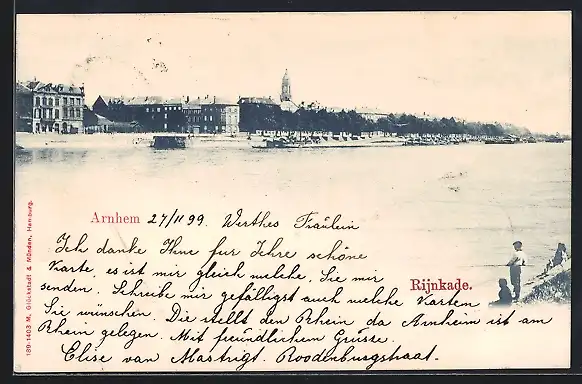 Arnhem 27/11 99. Werthes Fraülein
Ich danke Ihne fur Ihre schöne
Karte, es ist mir gleich welche, Sie mir
senden. Schreibe mir gefälligst auch welche Karten
Rijnkade.
Sie wünschen. Die stellt den Rhein da Arnheim ist am
Rhein gelegen. Mit freundlichem Grüsse.
Elise van Mastrigt. Roodenburgstraat.
189-1403 M. Glückstadt & Münden, Hamburg.